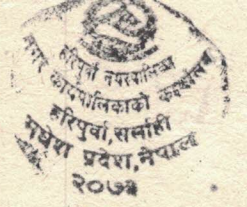 हरिपुर्वा नगरपालिका
नगर कार्यपालिकाको कार्यालय
हरिपुर्वा,सर्लाही
मधेश प्रदेश,नेपाल
२०७३